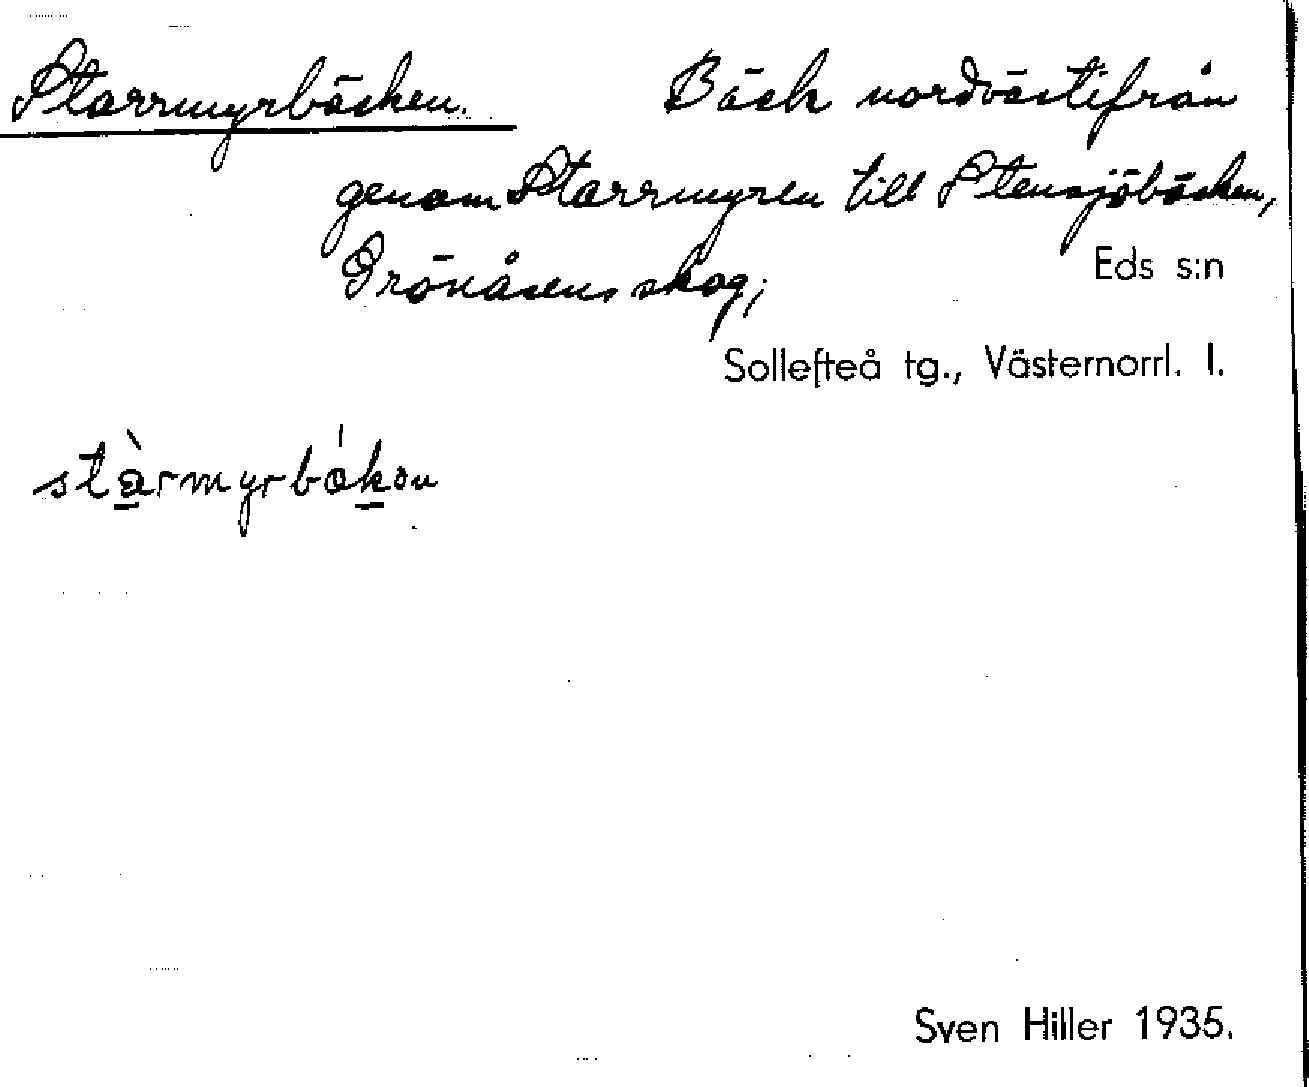 Starrmyrbäcken. Bäck nordvästifrån
genom Starrmyren till Stensjöbäcken,
Grönåsens skog;
Eds s:n
Sollefteå tg., Västernorrl. l.
stàrmyrbákən
Sven Hiller 1935.